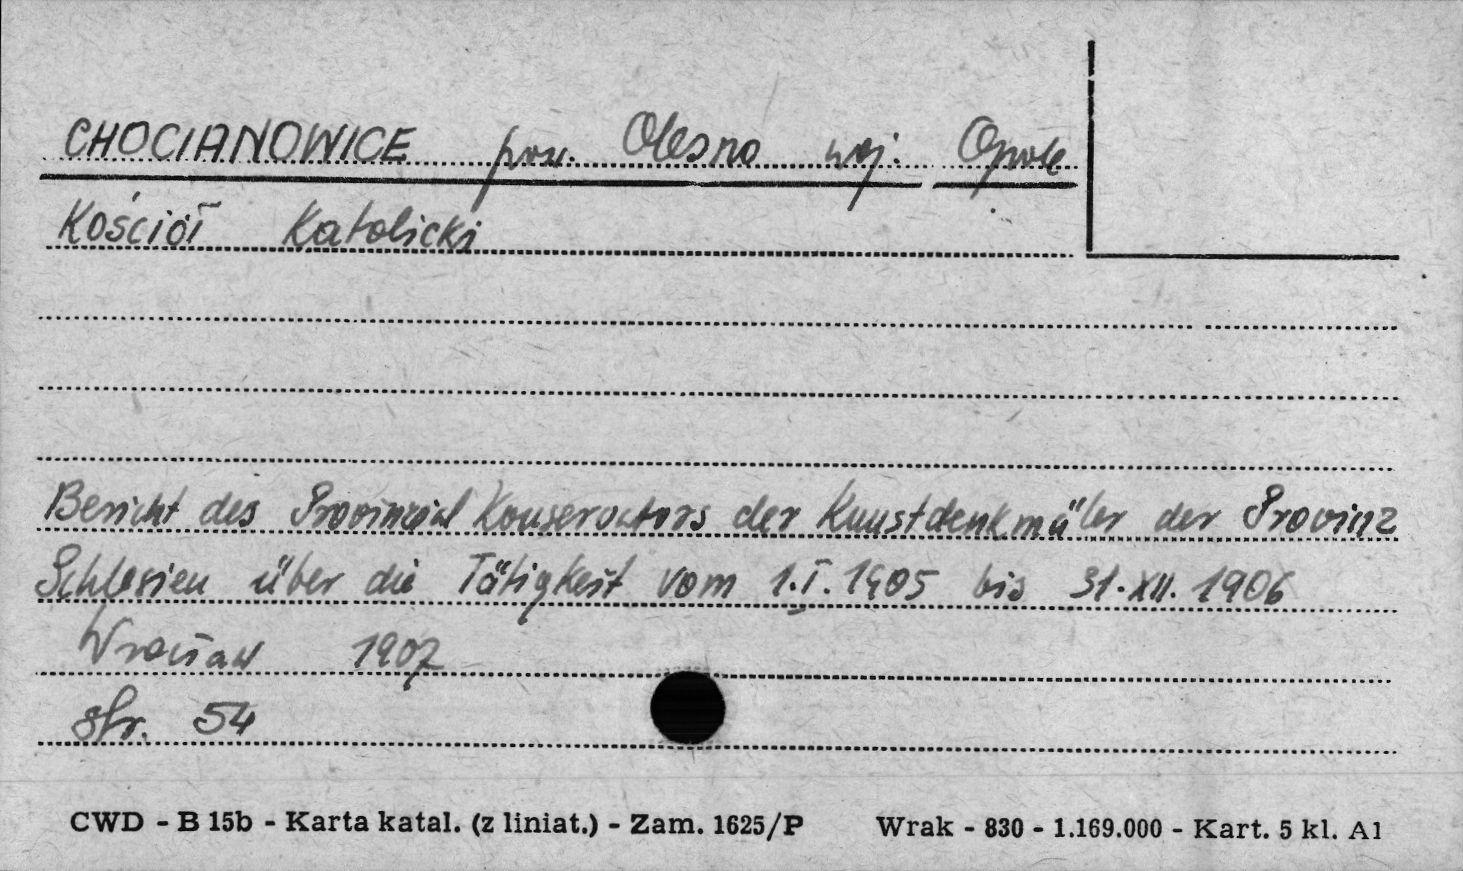 CHOCIANOWICE pow. Olesno woj. Opole
Kościół Katolicki
Bericht des Provinzial Konservators der Kunstdenkmäler der Provinz
Schlesien über die Tätigkeit vom 1.I.1905 bis 31.XII.1906
Wrocław 1907
str. 54
CWD - B 15b - Karta katal. (z liniat.) - Zam. 1625/P Wrak - 830 - 1.169.000 - Kart. 5 kl. A1